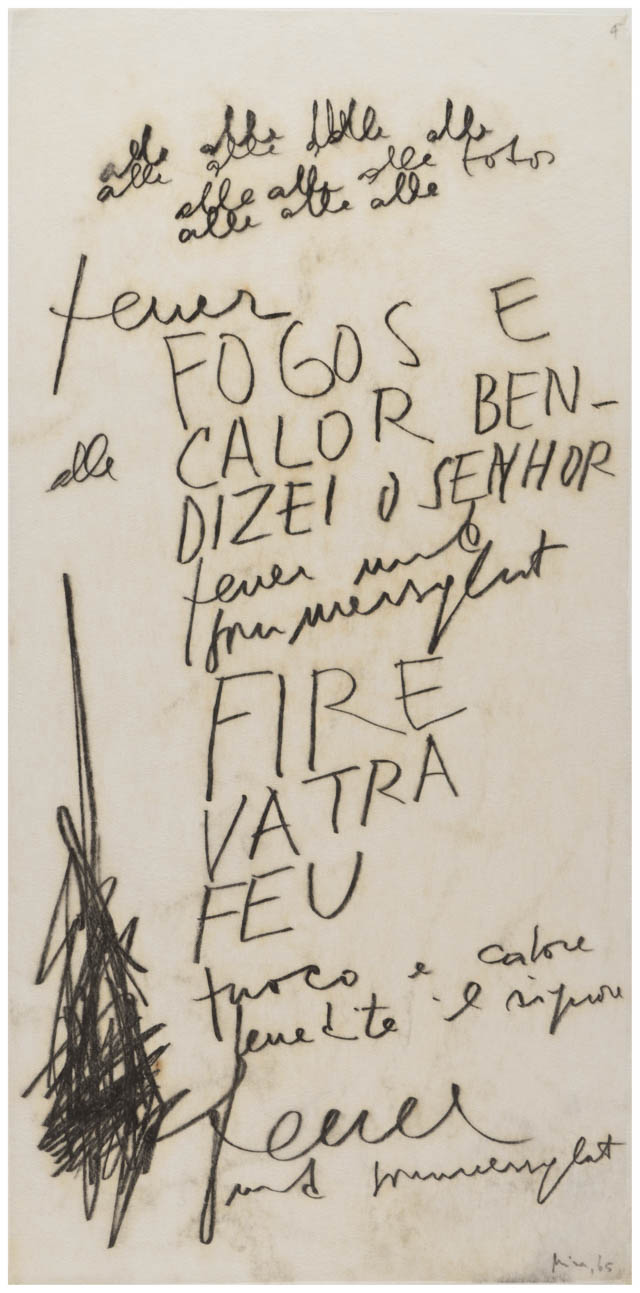 alle alle alle alle
alle alle alle todos
alle alle alle
feuer
FOGOS E
CALOR BEN-
alle
DIZEI O SENHOR
feuer und
sommersglut
FIRE
VATRA
FEU
fuoco e calore
benedite il signore
feuer
und sommersglut
Mira, 65